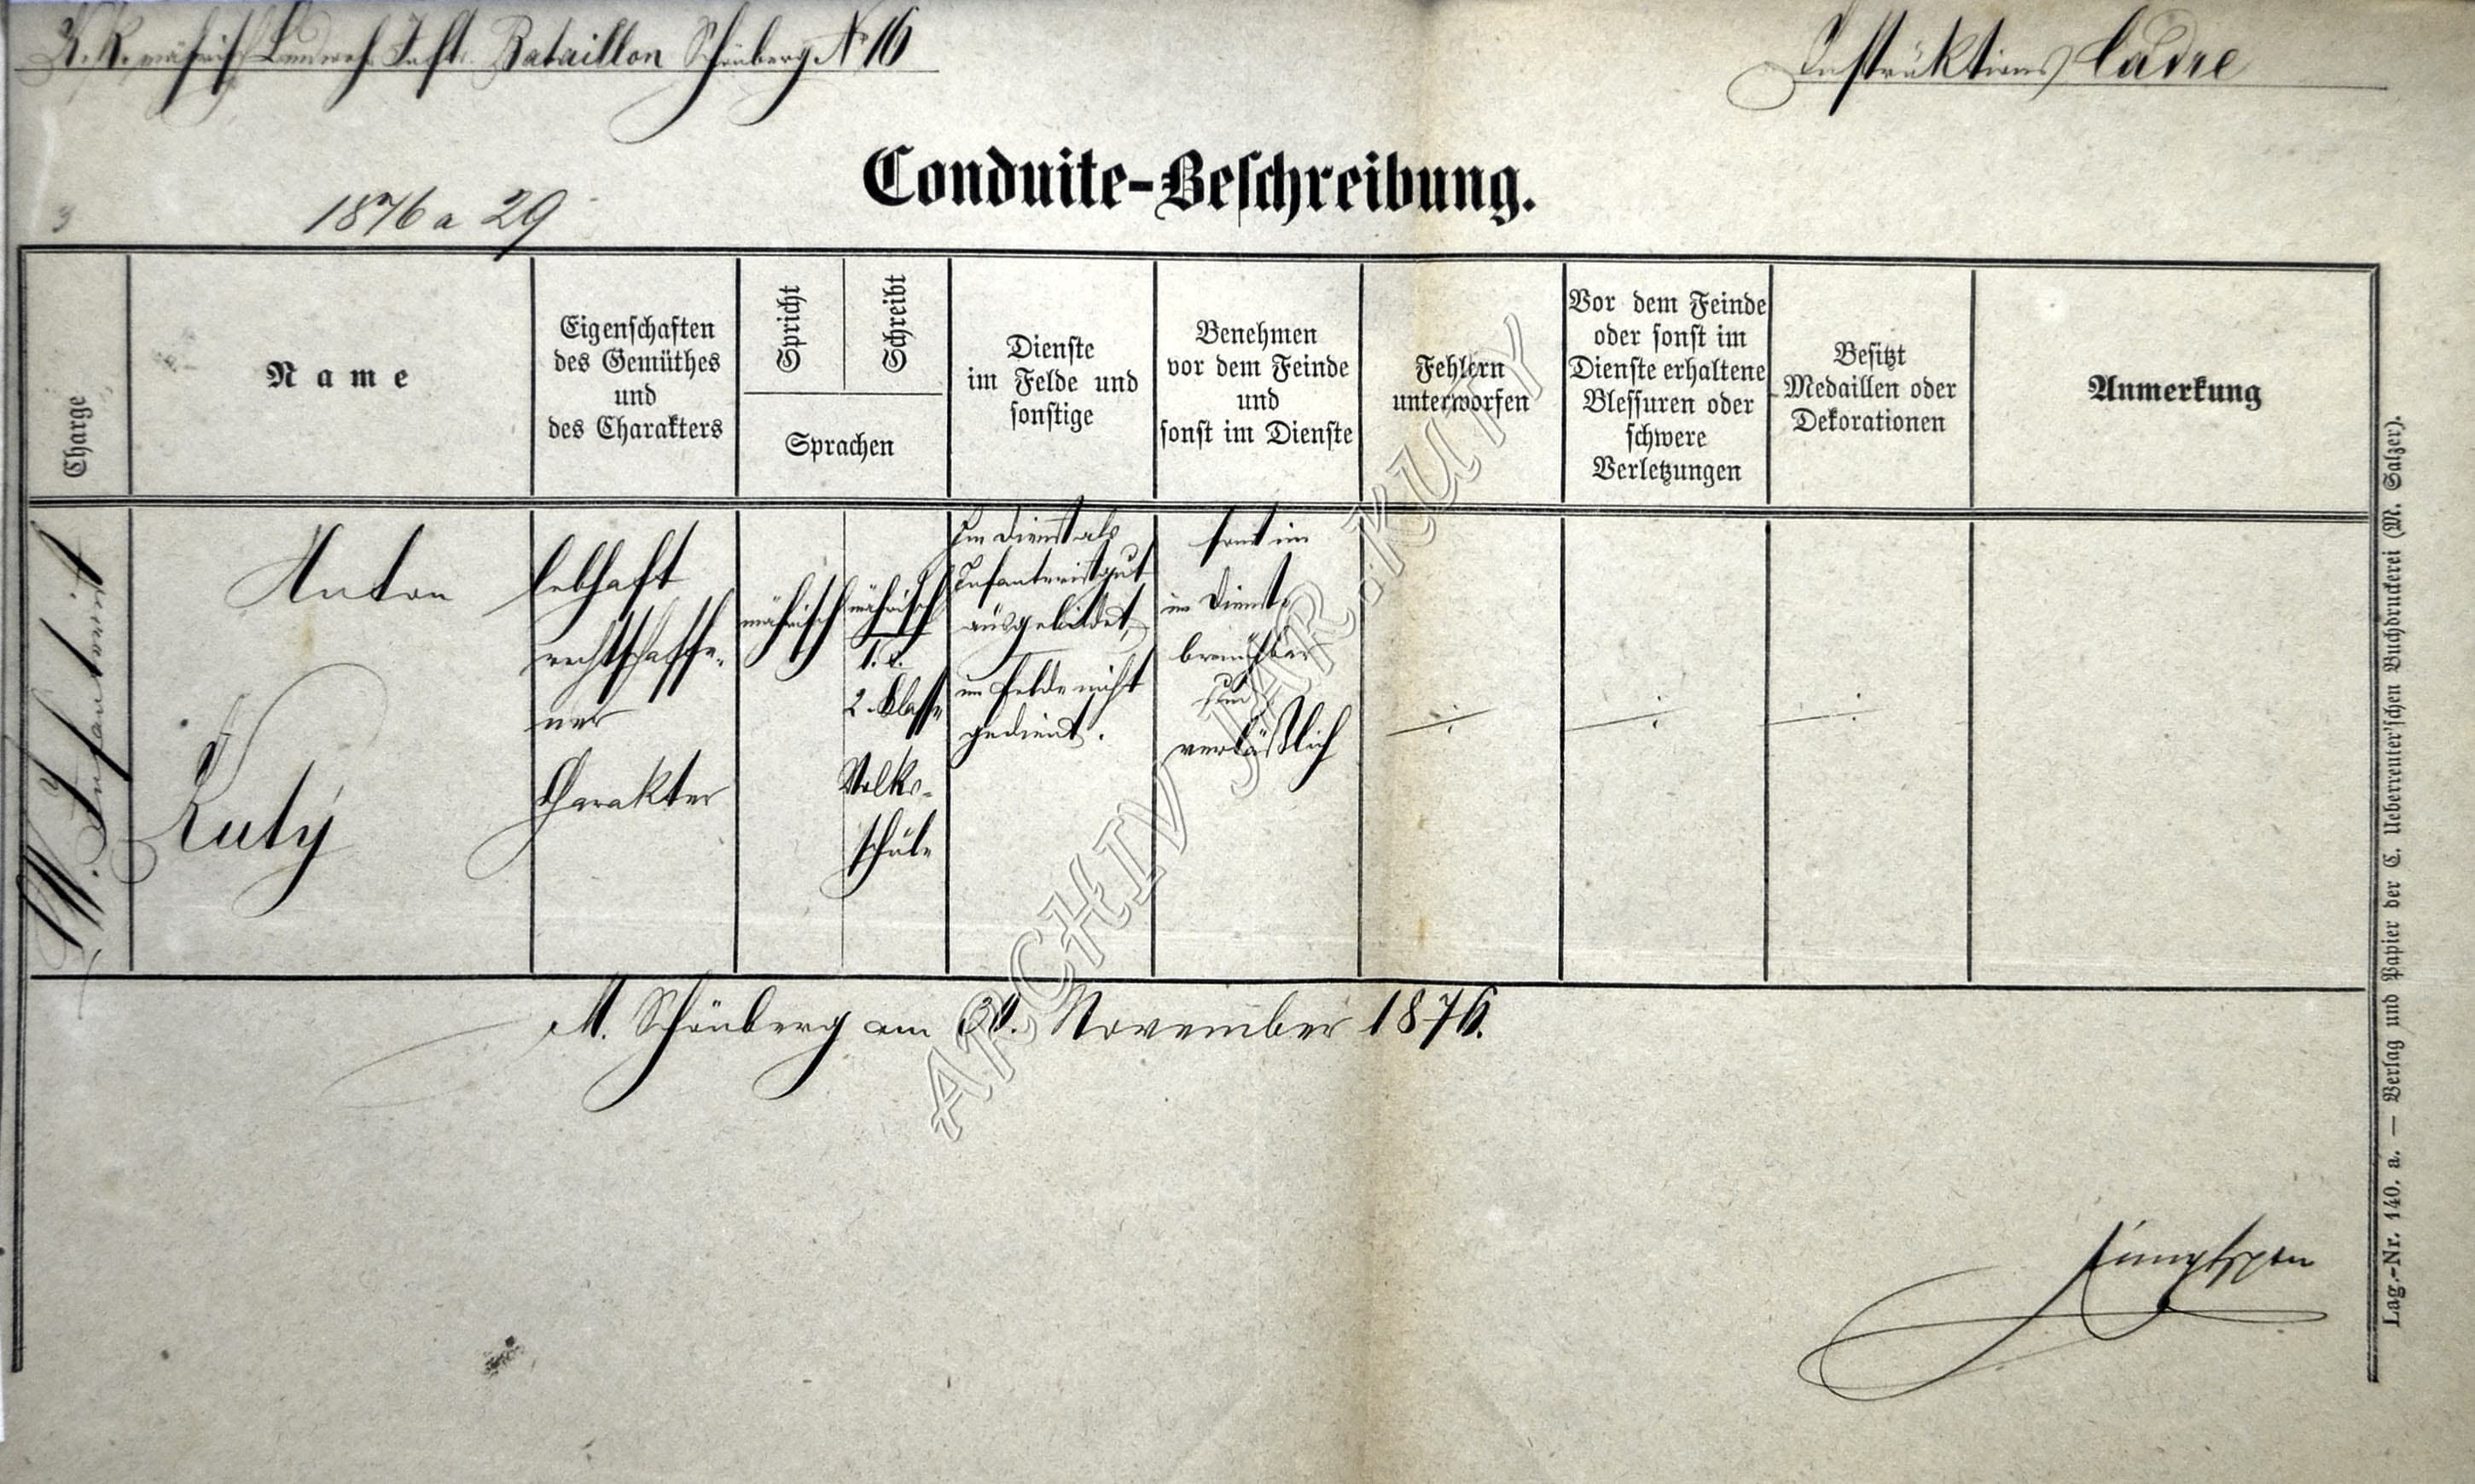 K. K. mährisch Landwehr Inft. Bataillon Schönberg Nº 16
Instruktions Cadre
Conduite-Beschreibung.
1876 a 29
Charge
Name
Eigenschaften
des Gemüthes
und
des Charakters
Spricht
Schreibt
Sprachen
Dienste
im Felde und
sonstige
Benehmen
vor dem Feinde
und
sonst im Dienste
Fehlern
unterworfen
Vor dem Feinde
oder sonst im
Dienste erhaltene
Blessuren oder
schwere
Verletzungen
Besitzt
Medaillen oder
Dekorationen
Anmerkung
Infanterist
Anton
Kutý
lebhaft
rechtschaffe-
ner
Charakter
mährisch
mährisch
2. Klasse
Volks-
schule
Im Dienst als
Infanterist gut
ausgebildet,
im Felde nicht
gedient.
sonst im
im Dienste
brauchbar
und
verläßlich
M. Schönberg am 30. November 1876.
Lag.-Nr. 140. a. — Verlag und Papier der C. Ueberreuter'schen Buchdruckerei (M. Salzer).
ARCHIV JAR. KUTÝ